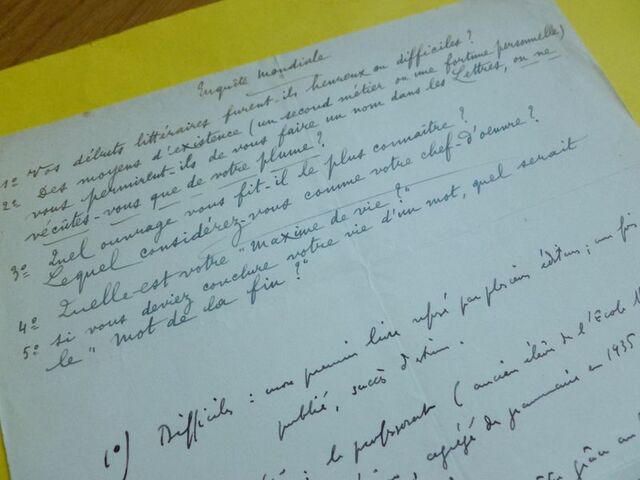 Enquête Mondiale
1º Vos débuts littéraires furent-ils heureux ou difficiles ?
2º Des moyens d'existence (un second métier ou une fortune personnelle)
vous permirent-ils de vous faire un nom dans les Lettres, ou ne
vécûtes-vous que de votre plume ?
3º Quel ouvrage vous fit-il le plus connaître ?
Lequel considérez-vous comme votre chef-d'oeuvre ?
4º Quelle est votre "Maxime de vie ?"
5º Si vous deviez conclure votre vie d'un mot, quel serait
le "Mot de la fin ?"
1º) Difficiles : mon premier livre refusé par plusieurs éditeurs ; une fois
publié, succès d'estime.
: le professorat (ancien élève de l'Ecole
agrégé de grammaire en 1935